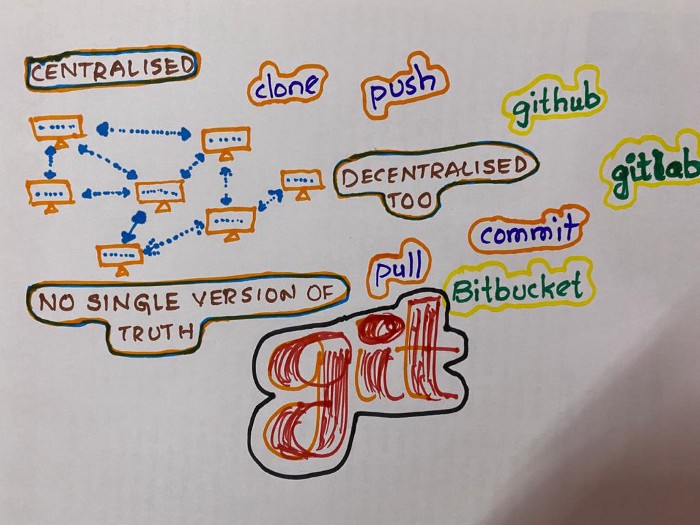 CENTRALISED
clone
push
github
gitlab
DECENTRALISED
TOO
commit
pull
Bitbucket
NO SINGLE VERSION OF
TRUTH
git